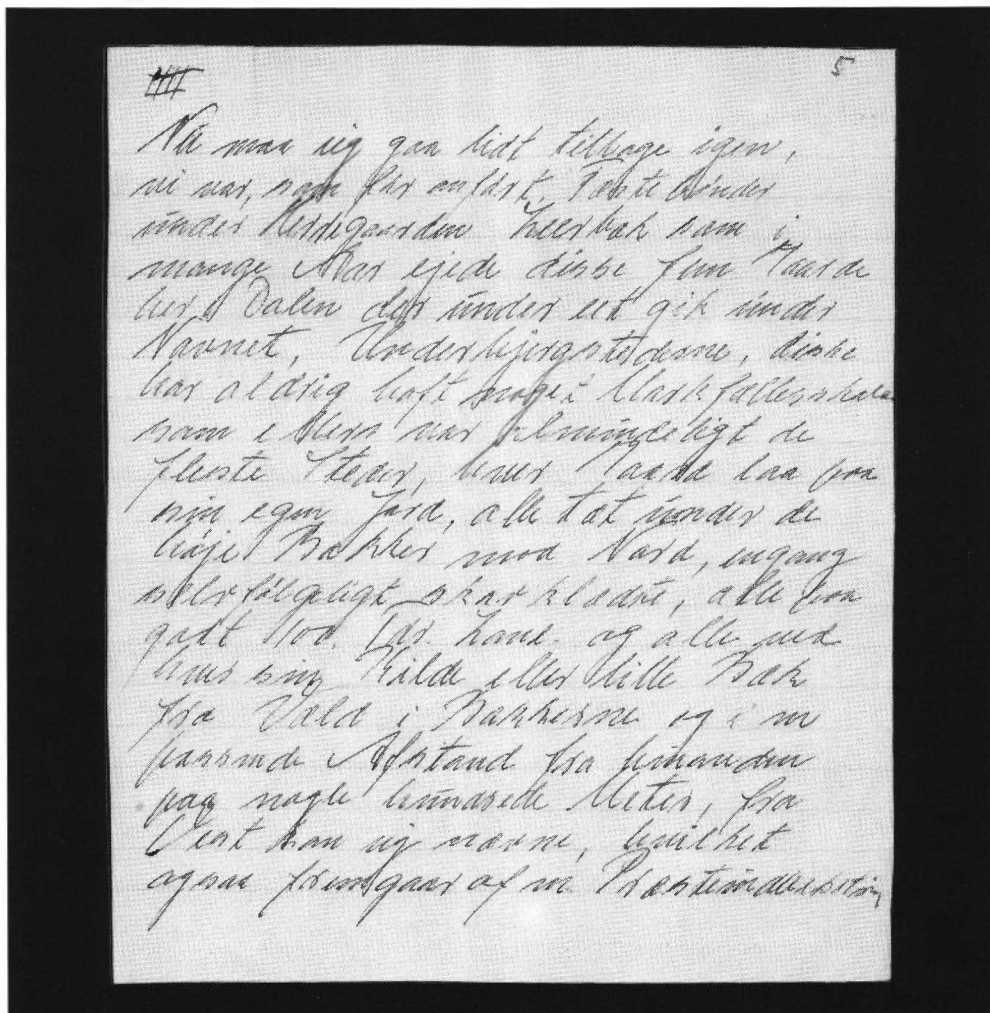 5
Nu maa jeg gaa lidt tilbage igen,
vi var, som før anført, Fæstebønder
under Herregaarden Leerbæk som i
mange Aar ejede disse fem Gaarde
her i Dalen der under eet gik under
Navnet, Underbjergstederne, disse
har aldrig haft noget Markfællesskab
som ellers var almindeligt de
fleste Steder, hver Gaard laa paa
sin egen Jord, alle tæt under de
høje Bakker mod Nord, engang
selvfølgeligt skovklædte, alle paa
godt tør Land og alle ved
hver sin Kilde eller lille Bæk
fra Væld i Bakkerne og i en
passende Afstand fra hinanden
paa nogle hundrede Meter, fra
Vest kan jeg nævne, hvilket
ogsaa fremgaar af en